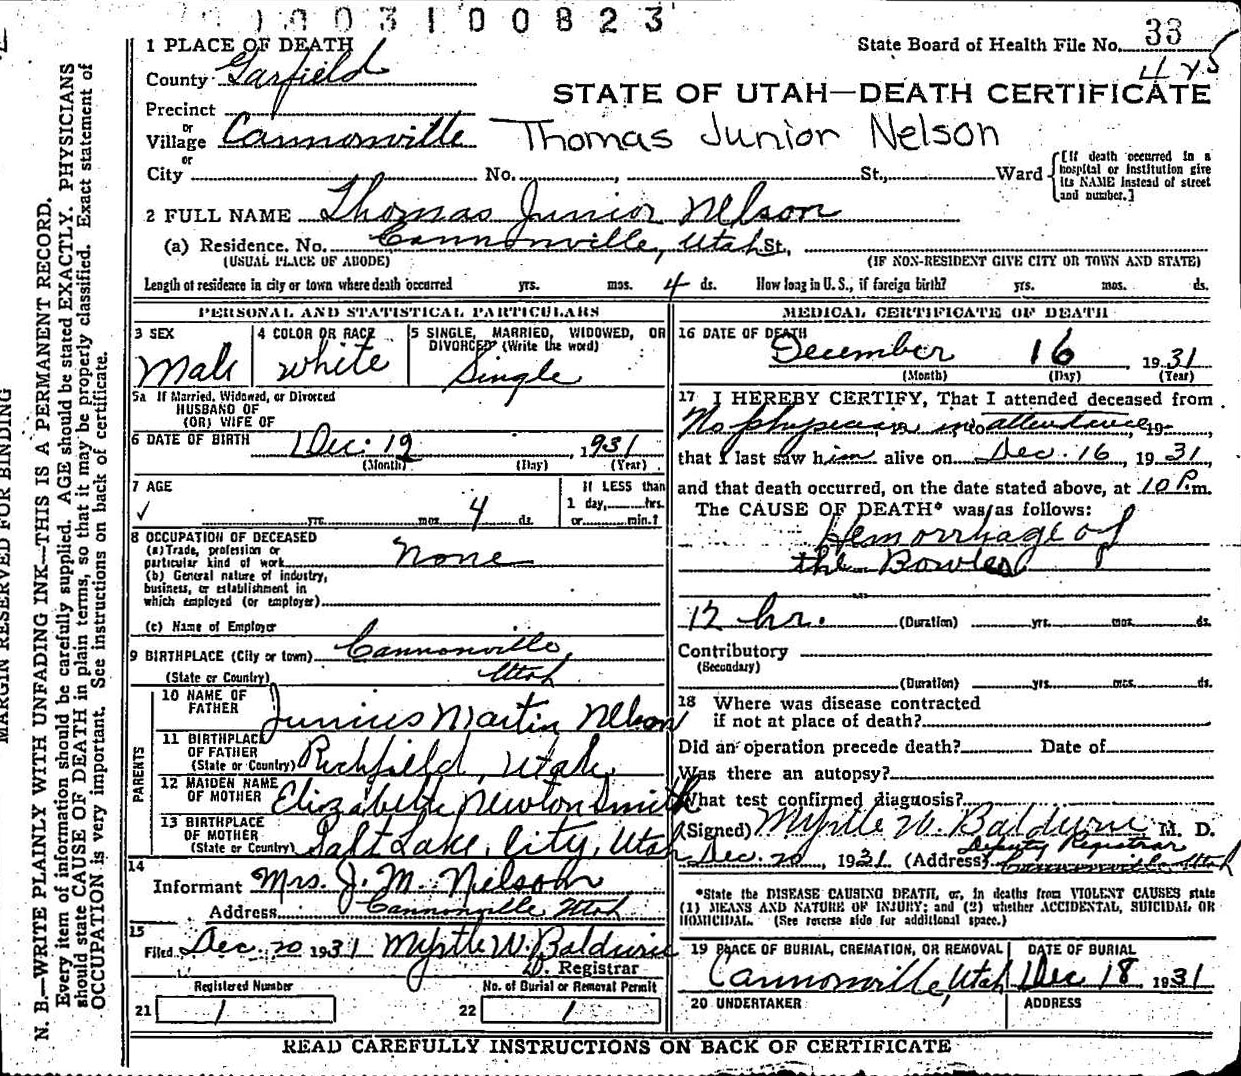 1003100823
1 PLACE OF DEATH
State Board of Health File No. 33
425
County Garfield
STATE OF UTAH—DEATH CERTIFICATE
Precinct
or
Village Cannonville
Thomas Junior Nelson
or
City No. , St., Ward
[If death occurred in a hospital or institution give its NAME instead of street and number.]
2 FULL NAME Thomas Junior Nelson
(a) Residence. No. Cannonville, Utah St.,
(USUAL PLACE OF ABODE) (IF NON-RESIDENT GIVE CITY OR TOWN AND STATE)
Length of residence in city or town where death occurred yrs. mos. 4 ds. How long in U. S., if foreign birth? yrs. mos. ds.
PERSONAL AND STATISTICAL PARTICULARS
3 SEX
Male
4 COLOR OR RACE
white
5 SINGLE, MARRIED, WIDOWED, OR
DIVORCED (Write the word)
Single
5a If Married, Widowed, or Divorced
HUSBAND OF
(OR) WIFE OF
6 DATE OF BIRTH Dec. 12, 1931
(Month) (Day) (Year)
7 AGE
✓ yrs. mos. 4 ds.
If LESS than
1 day, hrs.
or min.?
8 OCCUPATION OF DECEASED
(a) Trade, profession or
particular kind of work None
(b) General nature of industry,
business, or establishment in
which employed (or employer)
(c) Name of Employer
9 BIRTHPLACE (City or town) Cannonville,
(State or Country) Utah
PARENTS
10 NAME OF
FATHER Junius Martin Nelson
11 BIRTHPLACE
OF FATHER
(State or Country) Richfield, Utah.
12 MAIDEN NAME
OF MOTHER Elizabette Newton Smith
13 BIRTHPLACE
OF MOTHER
(State or Country) Salt Lake, City, Utah
14
Informant Mrs. J. M. Nelson
Address Cannonville Utah
15
Filed Dec. 20 1931 Myrtle W. Baldwin
D. Registrar
Registered Number
21 1
No. of Burial or Removal Permit
22 1
MEDICAL CERTIFICATE OF DEATH
16 DATE OF DEATH
December 16, 1931
(Month) (Day) (Year)
17 I HEREBY CERTIFY, That I attended deceased from
No physician in attendance, 19
that I last saw him alive on Dec. 16, 1931,
and that death occurred, on the date stated above, at 10 P.m.
The CAUSE OF DEATH* was as follows:
Hemorrhage of
the Bowles
12 hr. (Duration) yrs. mos. ds.
Contributory
(Secondary)
(Duration) yrs. mos. ds.
18 Where was disease contracted
if not at place of death?
Did an operation precede death? Date of
Was there an autopsy?
What test confirmed diagnosis?
(Signed) Myrtle W. Baldwin M. D.
Deputy Registrar
Dec. 20, 1931 (Address) Cannonville Utah
*State the DISEASE CAUSING DEATH, or, in deaths from VIOLENT CAUSES state
(1) MEANS AND NATURE OF INJURY; and (2) whether ACCIDENTAL, SUICIDAL OR
HOMICIDAL. (See reverse side for additional space.)
19 PLACE OF BURIAL, CREMATION, OR REMOVAL
Cannonville, Utah
DATE OF BURIAL
Dec 18 1931
20 UNDERTAKER
ADDRESS
READ CAREFULLY INSTRUCTIONS ON BACK OF CERTIFICATE
MARGIN RESERVED FOR BINDING
N. B.—WRITE PLAINLY WITH UNFADING INK—THIS IS A PERMANENT RECORD.
Every item of information should be carefully supplied. AGE should be stated EXACTLY. PHYSICIANS
should state CAUSE OF DEATH in plain terms, so that it may be properly classified. Exact statement of
OCCUPATION is very important. See instructions on back of certificate.